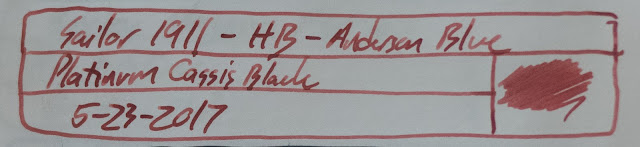 Sailor 1911 - HB - Anderson Blue
Platinum Cassis Black
5-23-2017